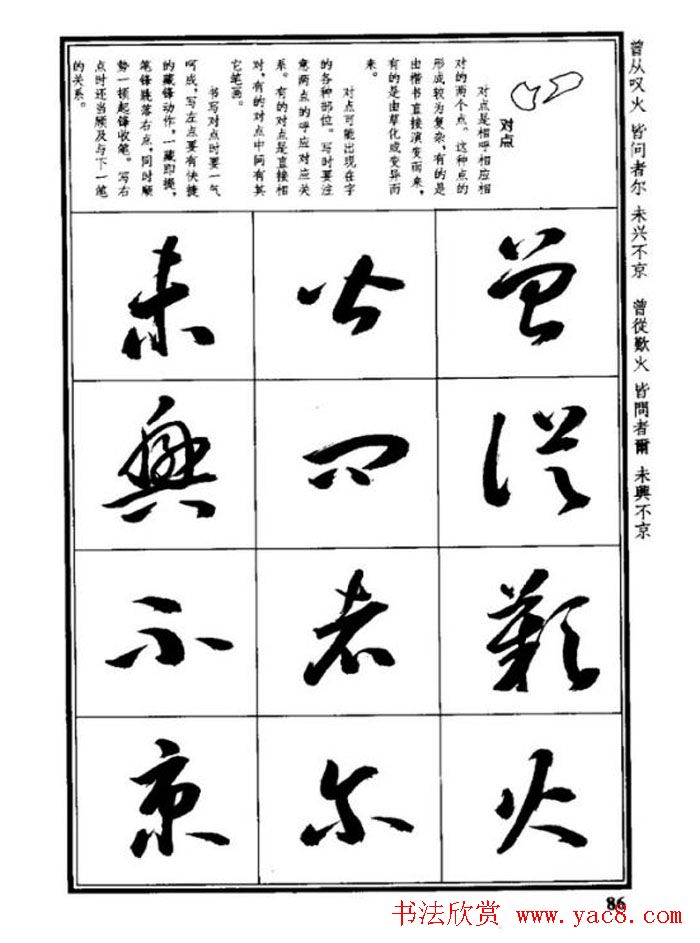 曾从叹火 皆问者尔 未兴不京 曾從歎火 皆問者爾 未興不京
对点
对点是相呼相应相
对的两个点。这种点的
形成较为复杂,有的是
由楷书直接演变而来,
有的是由草化或变异而
来。
对点可能出现在字
的各种部位。写时要注
意两点的呼应对应关
系。有的对点是直接相
对,有的对点中间有其
它笔画。
书写对点时要一气
呵成,写左点要有快捷
的藏锋动作,一藏即提,
笔锋跳落右点,同时顺
势一顿起锋收笔。写右
点时还当顾及与下一笔
的关系。
曾從歎火
皆问者尔
未興不京
86
书法欣赏 www.yac8.com